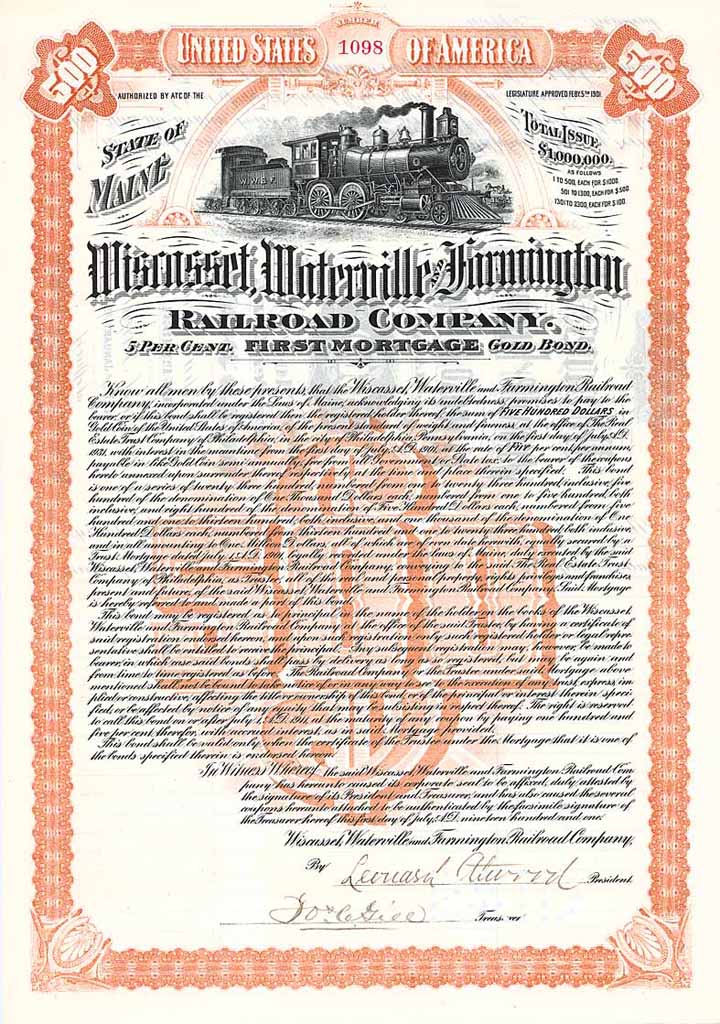 NUMBER
500 UNITED STATES 1098 OF AMERICA 500
AUTHORIZED BY ATC OF THE LEGISLATURE APPROVED FEBY. 5TH 1901
STATE OF MAINE
TOTAL ISSUE
$1,000,000.
AS FOLLOWS
1 TO 500, EACH FOR $1000.
501 TO 1300, EACH FOR $500
1301 TO 2300, EACH FOR $100.
W.W.& F.
Wiscasset, Waterville AND Farmington
RAILROAD COMPANY.
5 PER CENT. FIRST MORTGAGE GOLD BOND.
Know all men by these presents, that the Wiscasset, Waterville and Farmington Railroad
Company, incorporated under the Laws of Maine, acknowledging its indebtedness, promises to pay to the
bearer, or if this bond shall be registered then the registered holder thereof, the sum of FIVE HUNDRED DOLLARS in
Gold Coin of the United States of America, of the present standard of weight and fineness, at the office of The Real
Estate Trust Company of Philadelphia, in the city of Philadelphia, Pennsylvania, on the first day of July, A.D.
1931, with interest in the meantime from the first day of July, A.D. 1901, at the rate of Five per cent per annum,
payable in like Gold Coin semi-annually, free from all Government or State tax, to the bearer of the coupons
hereto annexed upon surrender thereof respectively at the times and place therein specified. This bond
is one of a series of twenty three hundred, numbered from one to twenty three hundred, inclusive, five
hundred of the denomination of One Thousand Dollars each, numbered from one to five hundred, both
inclusive, and eight hundred of the denomination of Five Hundred Dollars each, numbered from five
hundred and one to thirteen hundred, both inclusive, and one thousand of the denomination of One
Hundred Dollars each, numbered from thirteen hundred and one to twenty three hundred both inclusive,
and in all amounting to One Million Dollars, all of which are of even date herewith, equally secured by a
Trust Mortgage dated July 1, A.D. 1901, legally recorded under the laws of Maine, duly executed by the said
Wiscasset, Waterville and Farmington Railroad Company, conveying to the said The Real Estate Trust
Company of Philadelphia, as Trustee, all of the real and personal property, rights, privileges and franchises,
present and future, of the said Wiscasset, Waterville and Farmington Railroad Company. Said Mortgage
is hereby referred to and made a part of this bond.
This bond may be registered as to principal in the name of the holder on the books of the Wiscasset,
Waterville and Farmington Railroad Company, in the office of the said Trustee, by having a certificate of
said registration endorsed hereon, and upon such registration only such registered holder or legal repre-
sentative shall be entitled to receive the principal. Any subsequent registration may, however, be made to
bearer, in which case said bonds shall pass by delivery as if never so registered, but may be again and
from time to time registered as before. The Railroad Company or the Trustee under said Mortgage above
mentioned shall not be bound to take notice of or in any way to see to the execution of any trust, express, im-
plied or constructive affecting the title, or ownership of this bond, or of the principal or interest therein speci-
fied, or be affected by notice of any equity that may be subsisting in respect thereof. The right is reserved
to call this bond on or after July 1, A.D. 1911, at the maturity of any coupon by paying one hundred and
five per cent. therefor, with accrued interest, as in said Mortgage provided.
This bond shall be valid only when the certificate of the Trustee under the Mortgage that it is one of
the bonds specified therein is endorsed hereon.
In Witness Whereof the said Wiscasset, Waterville and Farmington Railroad Com-
pany has hereunto caused its corporate seal to be affixed, duly attested by
the signature of its President and Treasurer, and has also caused the several
coupons hereunto attached to be authenticated by the facsimile signature of
the Treasurer hereof this first day of July, A.D. nineteen hundred and one.
Wiscasset, Waterville and Farmington Railroad Company,
By Leonard Atwood President.
Treasurer